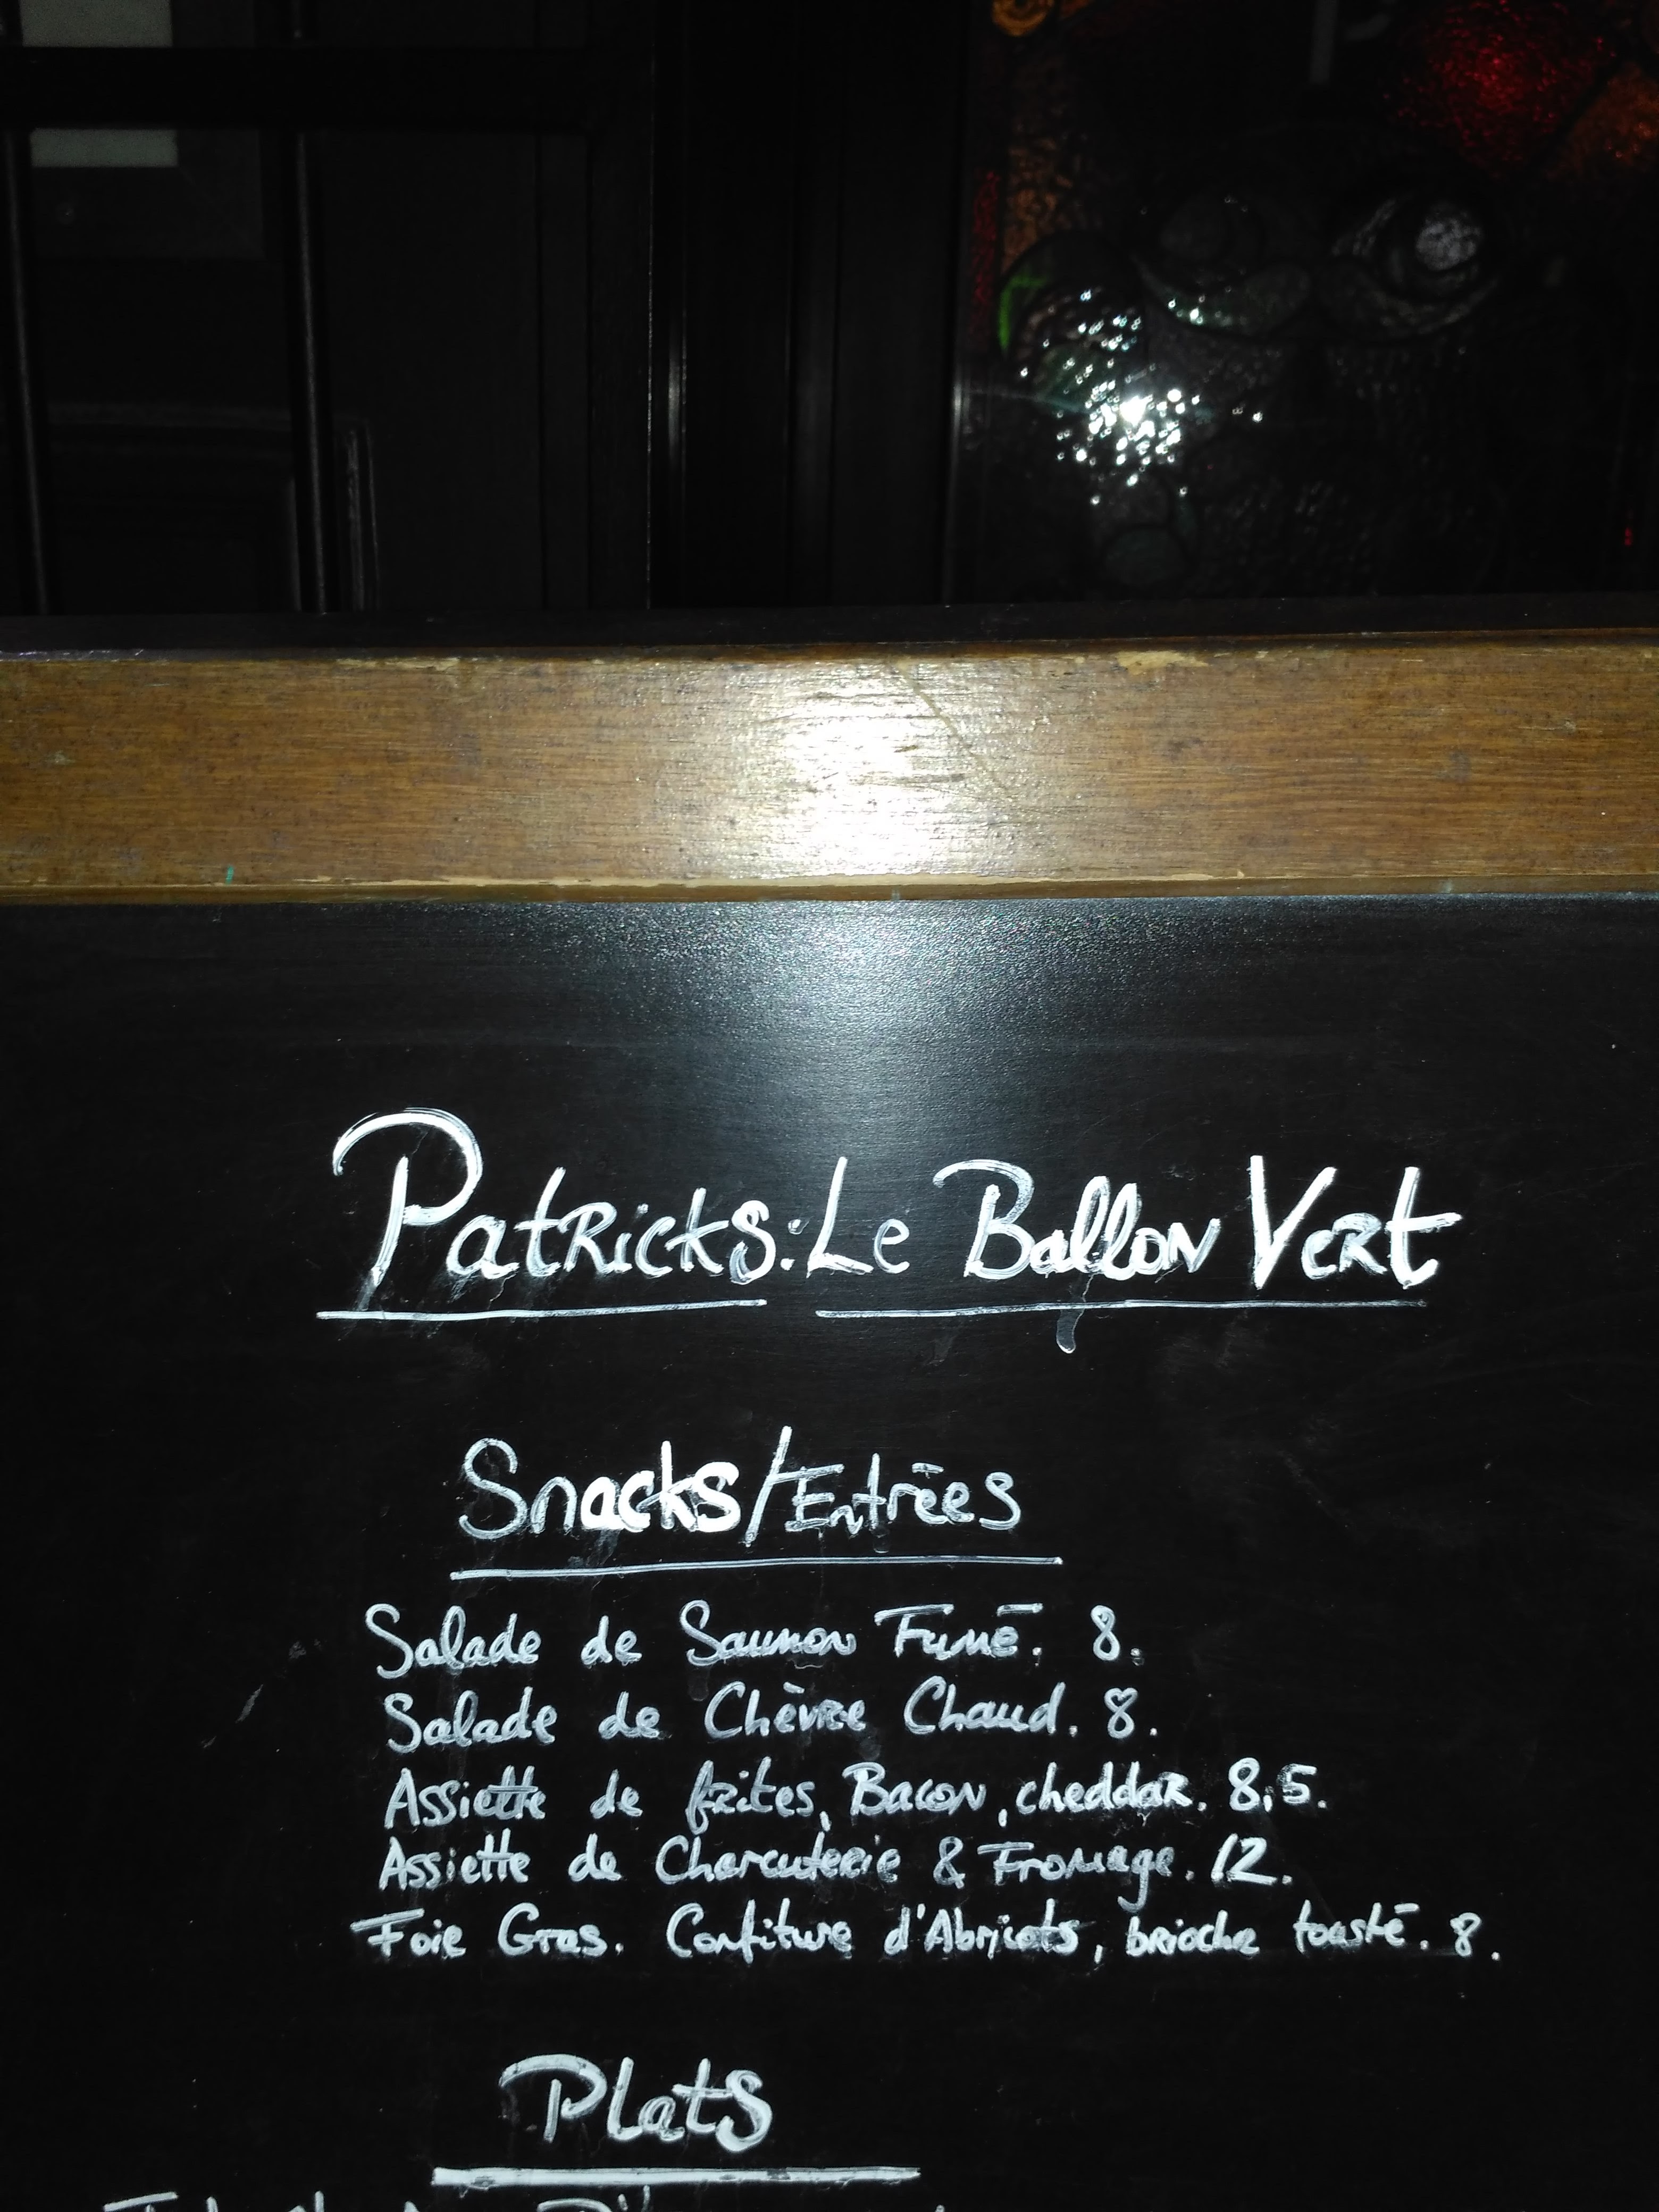 Patricks: Le Ballon Vert
Snacks/Entrées
Salade de Saumon Fumé. 8.
Salade de Chèvre Chaud. 8.
Assiette de frites, Bacon, cheddar. 8,5.
Assiette de Charcuterie & Fromage. 12.
Foie Gras. Confiture d'Abricots, brioche toasté. 8.
Plats